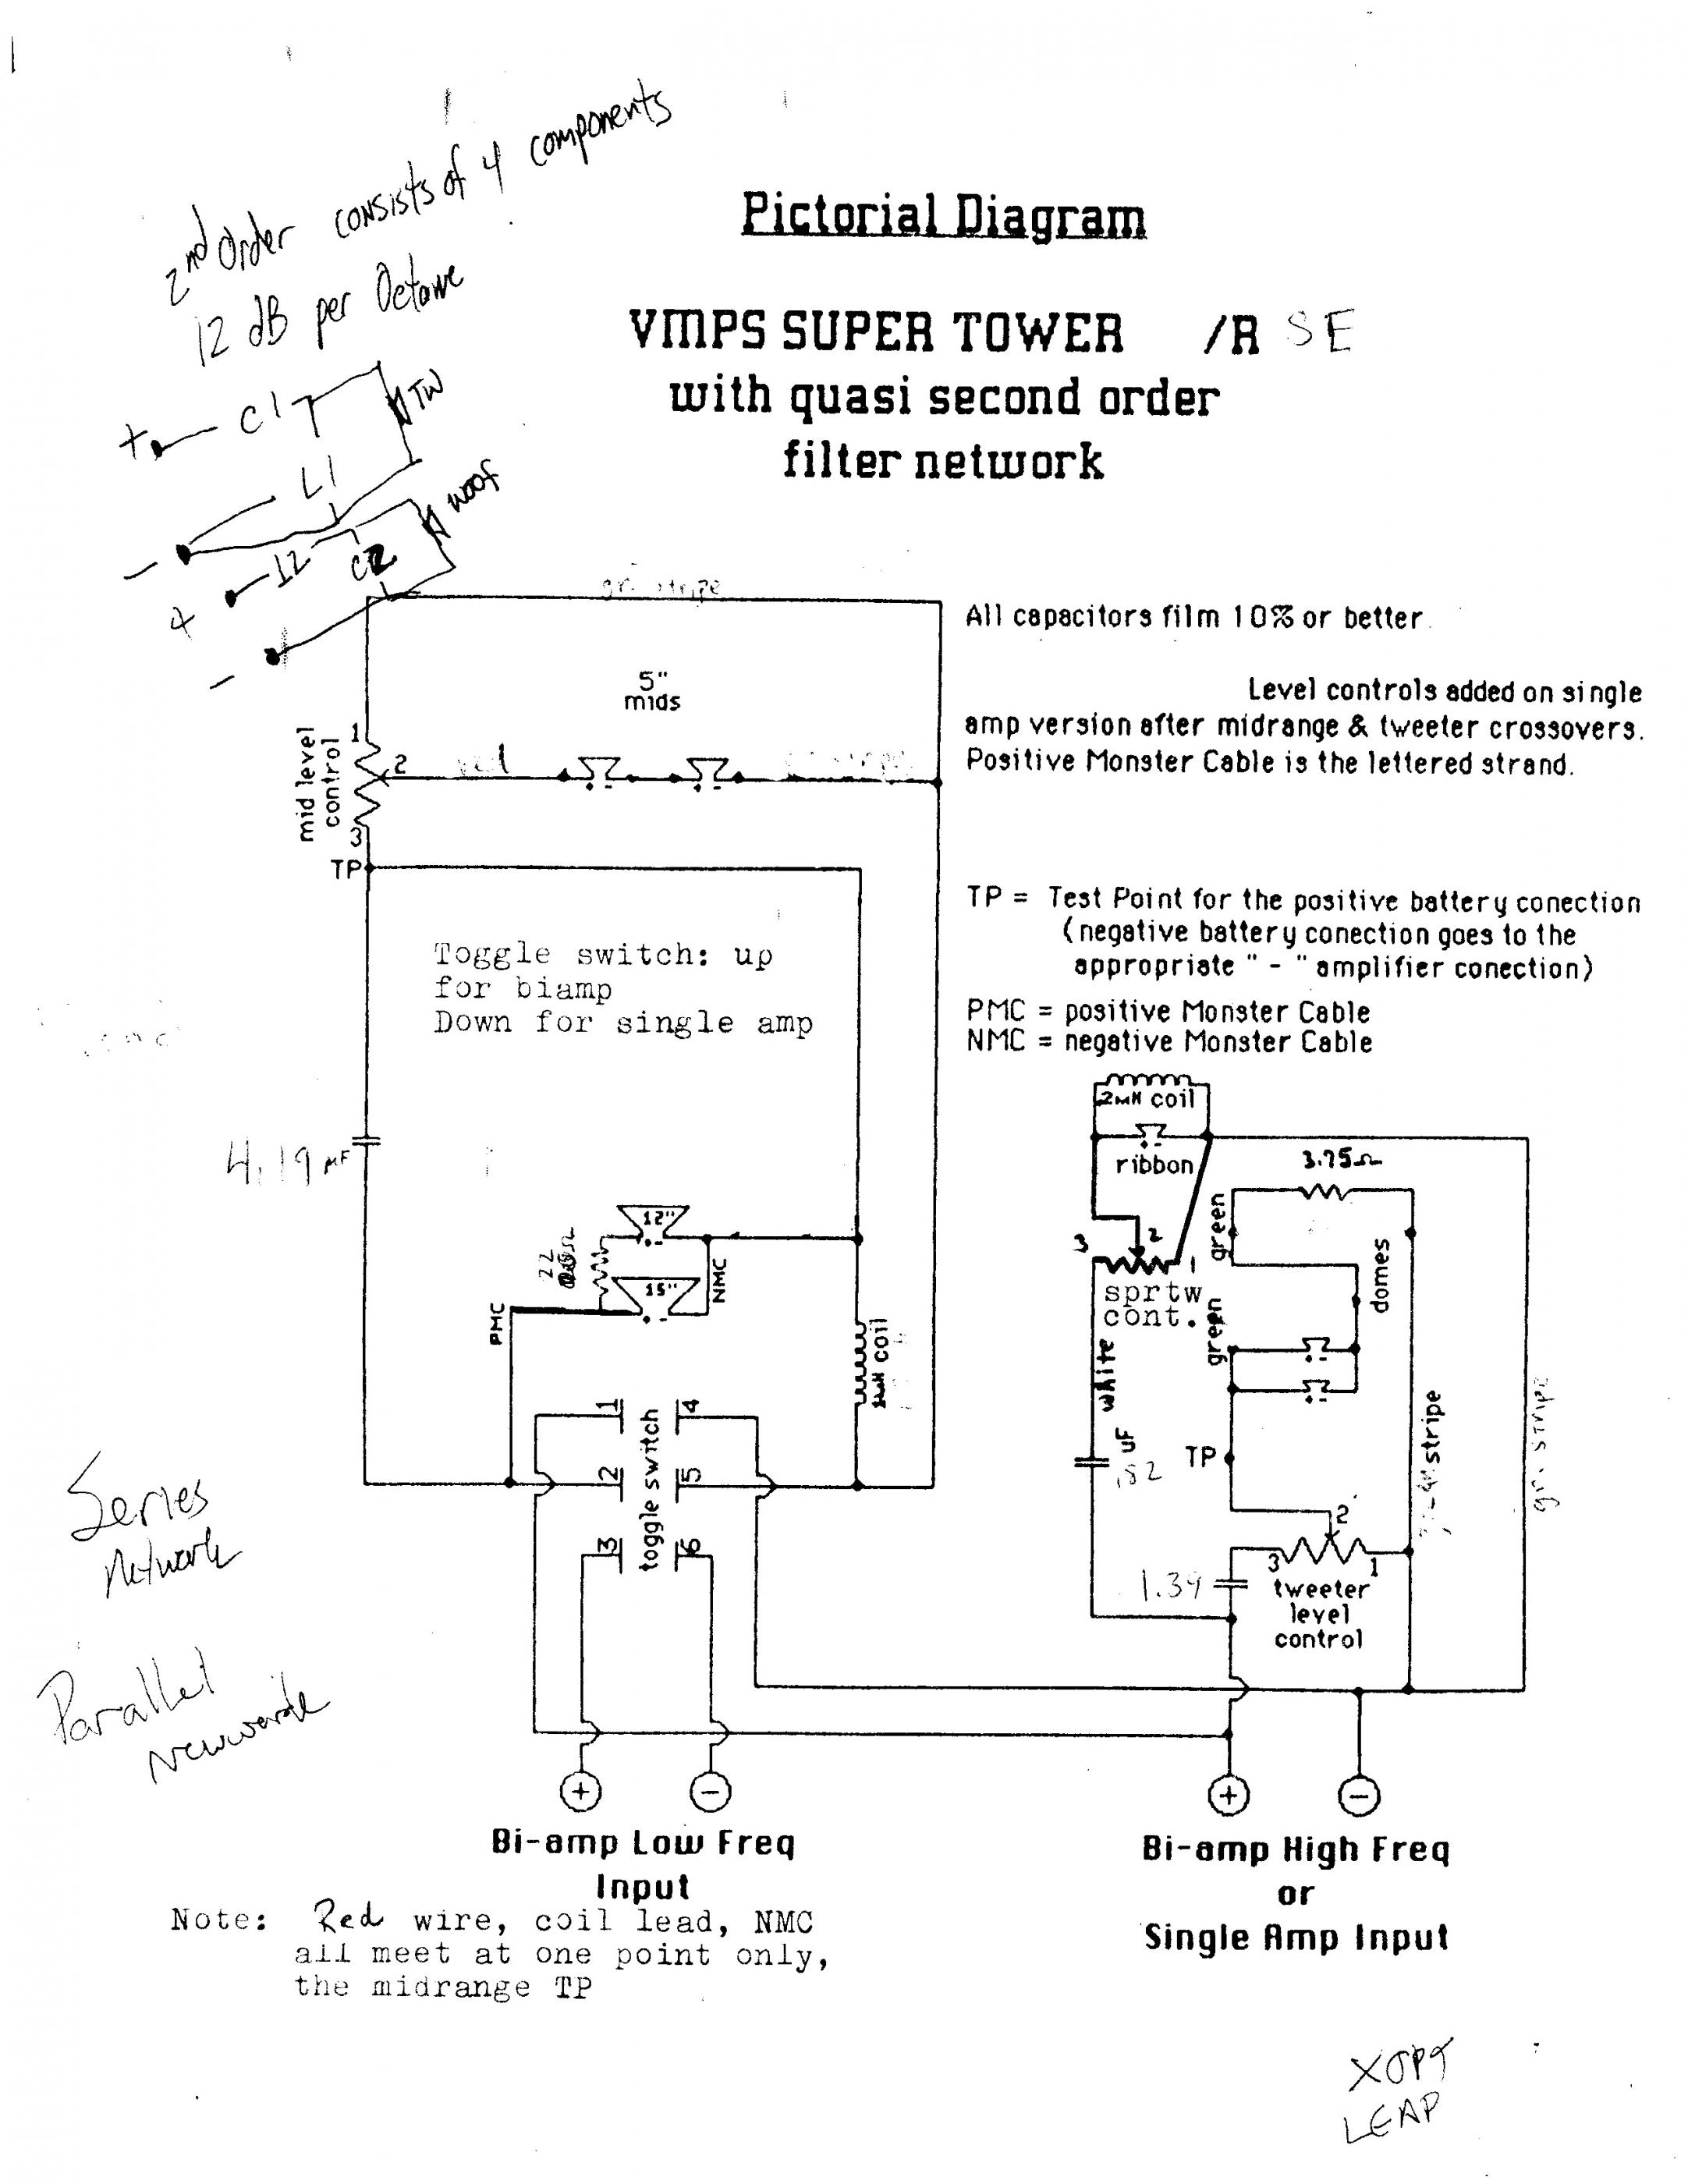 2nd Order consists of 4 components
12 dB per Octave
+ C1 TW
L1
-
+ L2 C2 woof
-
Pictorial Diagram
VMPS SUPER TOWER /R SE
with quasi second order
filter network
stripe
All capacitors film 10% or better.
5"
mids
Level controls added on single
amp version after midrange & tweeter crossovers.
Positive Monster Cable is the lettered strand.
mid level
control
1
2
3
red
TP
TP = Test Point for the positive battery conection
(negative battery conection goes to the
appropriate " - " amplifier conection)
PMC = positive Monster Cable
NMC = negative Monster Cable
Toggle switch: up
for biamp
Down for single amp
4.19 µF
12"
22
Ω
15"
NMC
PMC
coil
1
2
3
toggle switch
4
5
6
coil
ribbon
3.75Ω
green
domes
3
2
1
sprtw
cont.
green
white
uF
.82
TP
stripe
gr. stripe
2
3
1
1.39
tweeter
level
control
Series
Network
Parallel
+
-
Bi-amp Low Freq
Input
+
-
Bi-amp High Freq
or
Single Amp Input
Note: Red wire, coil lead, NMC
all meet at one point only,
the midrange TP
XOPT
LEAP